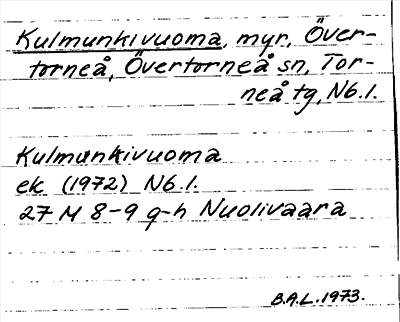 Kulmunkivuoma, myr, Över-
torneå, Övertorneå sn, Tor-
neå tg, Nb.l.
Kulmunkivuoma
ek (1972) Nb.l.
27 M 8-9 g-h Nuolivaara
B.A.L. 1973.